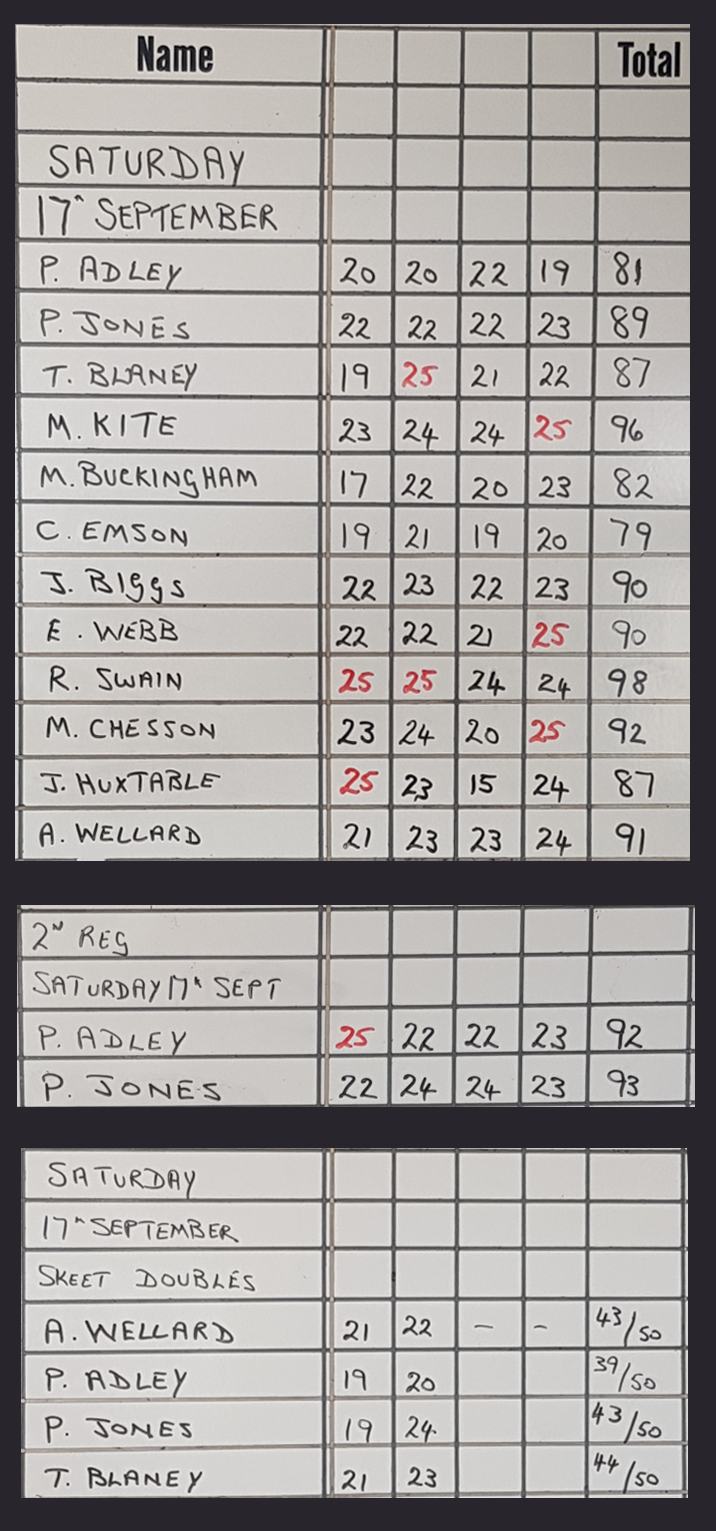 Name Total
SATURDAY
17" SEPTEMBER
P. ADLEY 20 20 22 19 81
P. JONES 22 22 22 23 89
T. BLANEY 19 25 21 22 87
M. KITE 23 24 24 25 96
M. BUCKINGHAM 17 22 20 23 82
C. EMSON 19 21 19 20 79
J. BIGGS 22 23 22 23 90
E. WEBB 22 22 21 25 90
R. SWAIN 25 25 24 24 98
M. CHESSON 23 24 20 25 92
J. HUXTABLE 25 23 15 24 87
A. WELLARD 21 23 23 24 91
2ND REG
SATURDAY 17th SEPT
P. ADLEY 25 22 22 23 92
P. JONES 22 24 24 23 93
SATURDAY
17th SEPTEMBER
SKEET DOUBLES
A. WELLARD 21 22 - - 43/50
P. ADLEY 19 20 39/50
P. JONES 19 24 43/50
T. BLANEY 21 23 44/50